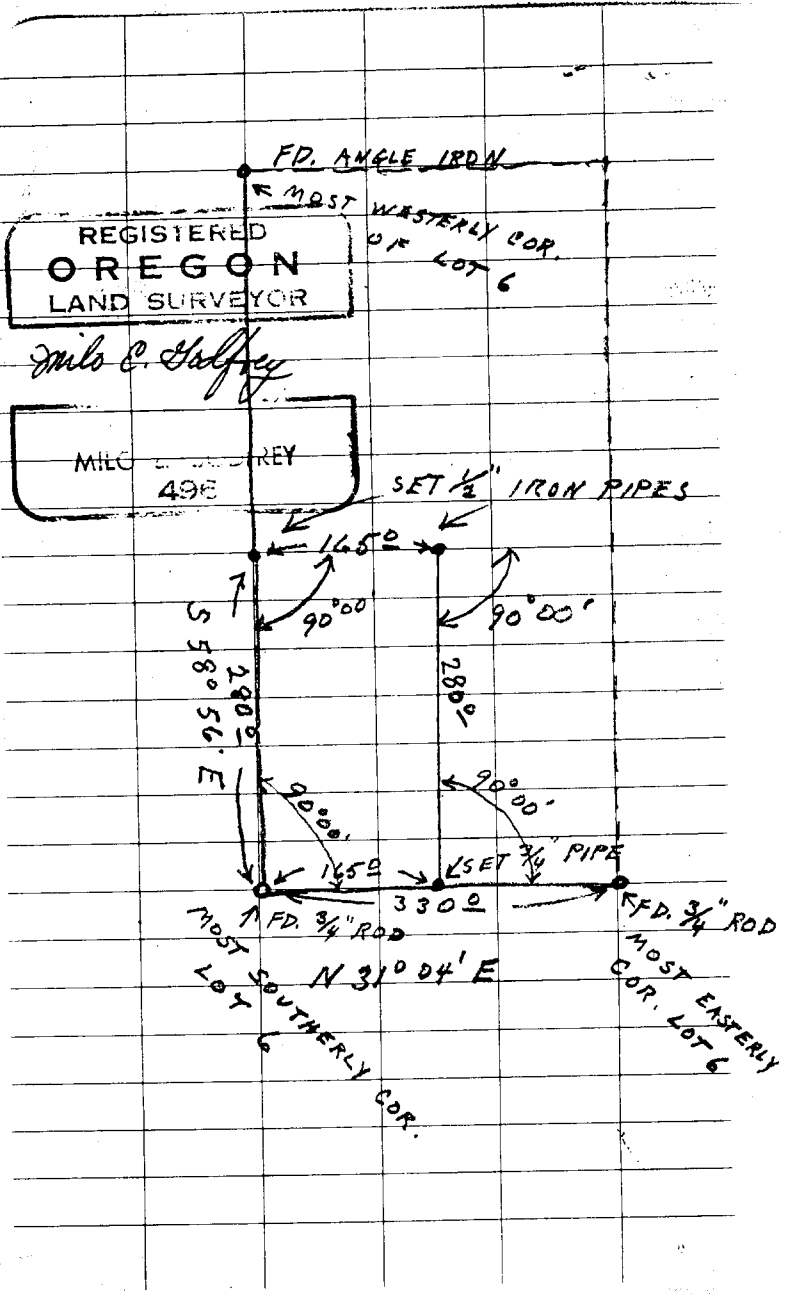 FD. ANGLE IRON
MOST WESTERLY COR.
OF LOT 6
REGISTERED
OREGON
LAND SURVEYOR
Milo E. Godfrey
MILO
REY
496
SET 1/2" IRON PIPES
165º
90°00
90°00'
280º
S 58° 56' E
280º
90°00'
90°00'
165º
SET 3/4" PIPE
330º
FD. 3/4" ROD
FD. 3/4" ROD
MOST SOUTHERLY COR.
LOT 6
N 31° 04' E
MOST EASTERLY
COR. LOT 6